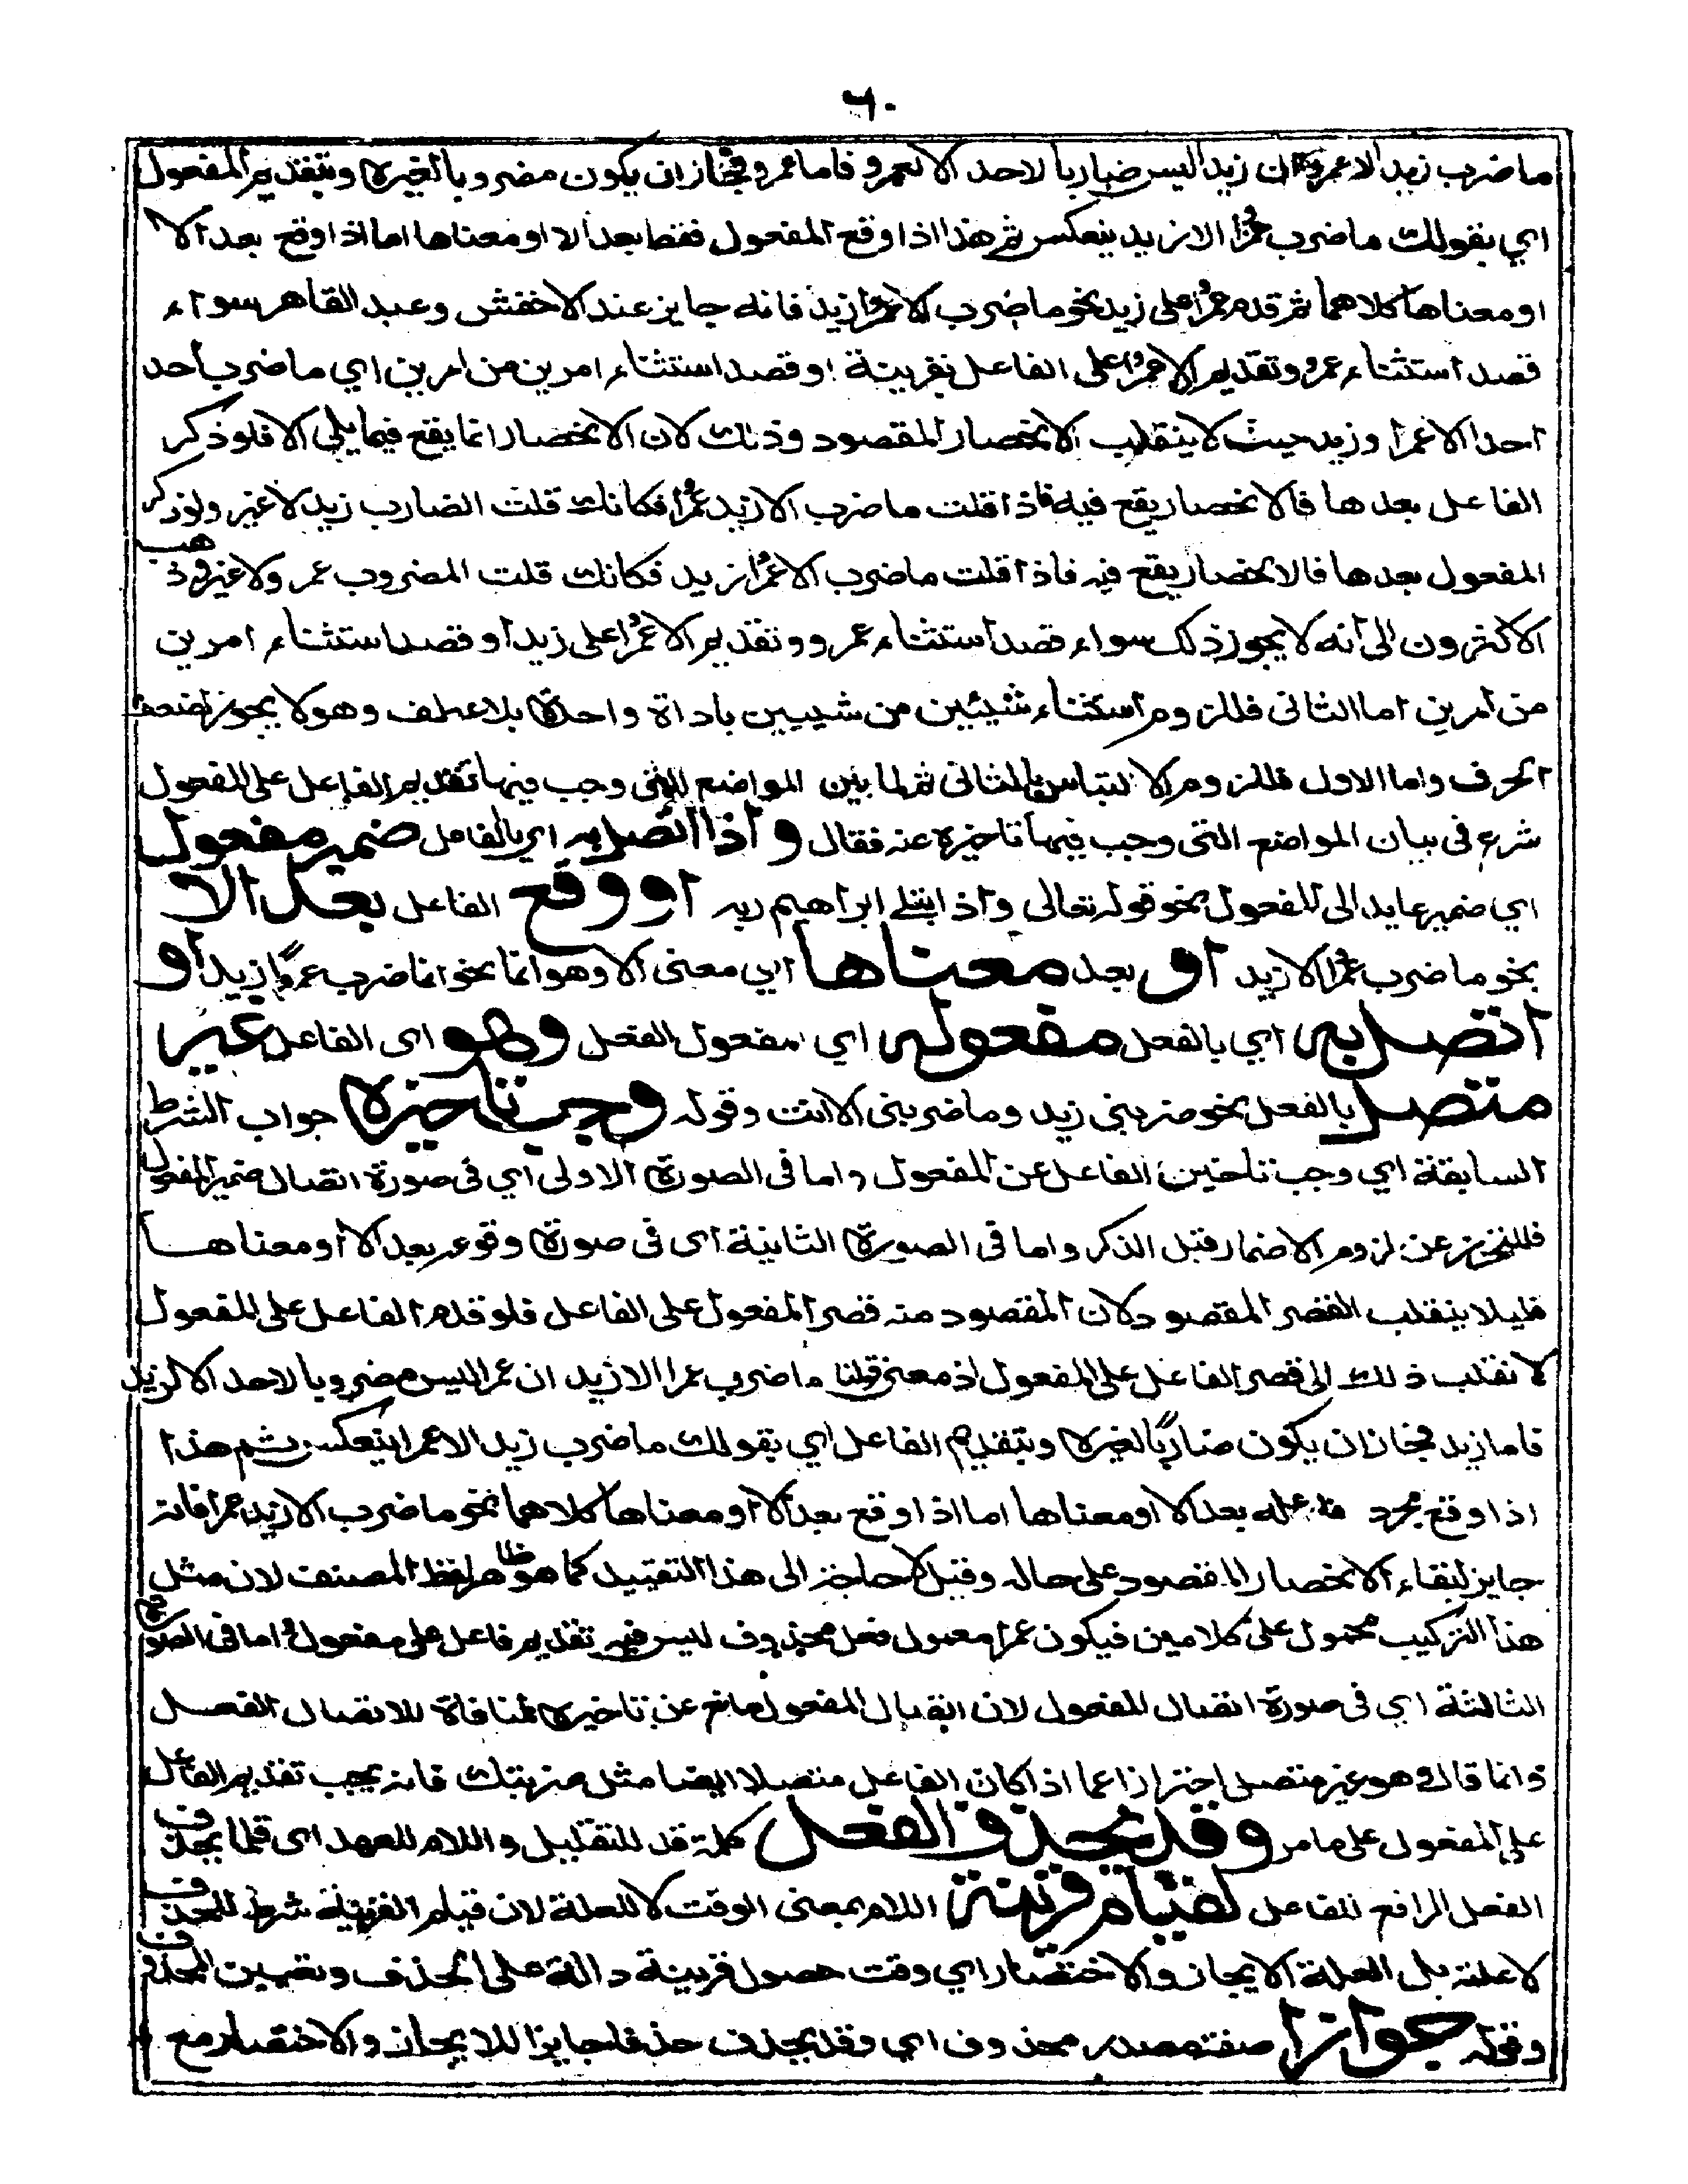 ٦٠
ما ضرب زيد الا عمروا ان زيد اليس ضاربا لاحد الا لعمرو فاما عمرو فجاز ان يكون مضروبا لغيره وبتقديم المفعول
اي بقولك ما ضرب عمرا الا زيد ينعكس ثم هذا اذا وقع المفعول فقط بعد الا او معناها اما اذا وقع بعد الا
او معناها كلاهما ثم قدم عمرا على زيد نحو ما ضرب الا عمرا زيد فانه جايز عند الاخفش وعبد القاهر سواء
قصد استثناء عمرو وتقديم الا عمرا على الفاعل بقرينة او قصد استثناء امرين من امرين اي ما ضرب احد
احدا الا عمرا وزيد حيث لا ينقلب الانحصار المقصود وذلك لان الانحصار انما يقع فيما يلي الا فلو ذكر
الفاعل بعدها فالانحصار يقع فيه فاذا قلت ما ضرب الا زيد عمرا فكانك قلت الضارب زيد لا غير ولو ذكر
المفعول بعدها فالانحصار يقع فيه فاذا قلت ما ضرب الا عمرا زيد فكانك قلت المضروب عمرو لا غير وذهب
الاكثرون الى انه لا يجوز ذلك سواء قصد استثناء عمرو وتقديم الا عمرا على زيد او قصد استثناء امرين
من امرين اما الثاني فللزوم استثناء شيئين من شيئين باداة واحدة بلا عطف وهو لا يجوز لضعف
الحرف واما الاول فللزوم الالتباس بالثاني ثم لما بين المواضع التي وجب فيها تقديم الفاعل على المفعول
شرع في بيان المواضع التي وجب فيها تاخيره عنه فقال واذا اتصل به اي بالفاعل ضمير مفعول
اي ضمير عايد الى المفعول نحو قوله تعالى واذ ابتلى ابراهيم ربه او وقع الفاعل بعد الا
نحو ما ضرب عمرا الا زيد او بعد معناها اي معنى الا وهو انما نحو انما ضرب عمرًا زيد او
اتصل به اي بالفعل مفعوله اي مفعول الفعل وهو اى الفاعل غير
متصل بالفعل نحو ضربني زيد وما ضربني الا انت وقوله وجب تاخيره جواب الشرط
السابقة اي وجب تاخير الفاعل عن المفعول واما في الصورة الاولى اي في صورة اتصال ضمير المفعول
فللتحرز عن لزوم الاضمار قبل الذكر واما في الصورة الثانية اى في صورة وقوعه بعد الا او معناها
فليلا ينقلب القصر المقصود لان المقصود منه قصر المفعول على الفاعل فلو قدم الفاعل على المفعول
لانقلب ذلك الى قصر الفاعل على المفعول اذ معنى قولنا ما ضرب عمرا الا زيد ان عمرا ليس مضروبا لاحد الا لزيد
فاما زيد فجاز ان يكون ضاربًا لغيره وبتقديم الفاعل اي بقولك ما ضرب زيد الا عمرا ينعكس ثم هذا
اذا وقع مجرد فاعله بعد الا او معناها اما اذا وقع بعد الا او معناها كلاهما نحو ما ضرب الا زيد عمرا فانه
جايز لبقاء الانحصار المقصود على حاله وقيل لا حاجز الى هذا التقييد كما هو ظاهر لفظ المصنف لان مثل
هذا التركيب محمول على كلامين فيكون عمرا معمول فعل محذوف ليس فيه تقديم فاعل على مفعول واما في الصورة
الثالثة اي في صورة اتصال المفعول لان اتصال المفعول مانع عن تاخيره لمنافاة للاتصال الفصل
وانما قال وهو غير متصل احترازا عما اذا كان الفاعل متصلا ايضا مثل ضربتك فانه يجب تقديم الفاعل
على المفعول على ما مر وقد يحذف الفعل كلمة قد للتقليل واللام للعهد اى قلما يحذف
الفعل الرافع للفاعل لقيام قرينة اللام بمعنى الوقت لا للعلة لان قيام القرينة شرط للحذف
لا علته بل العلة الايجاز والاختصار اي وقت حصول قرينة دالة على الحذف وتعيين المحذوف
وقوله جوازا صفة مصدر محذوف اي وقد يحذف حذفا جايزا للايجاز والاختصار مع